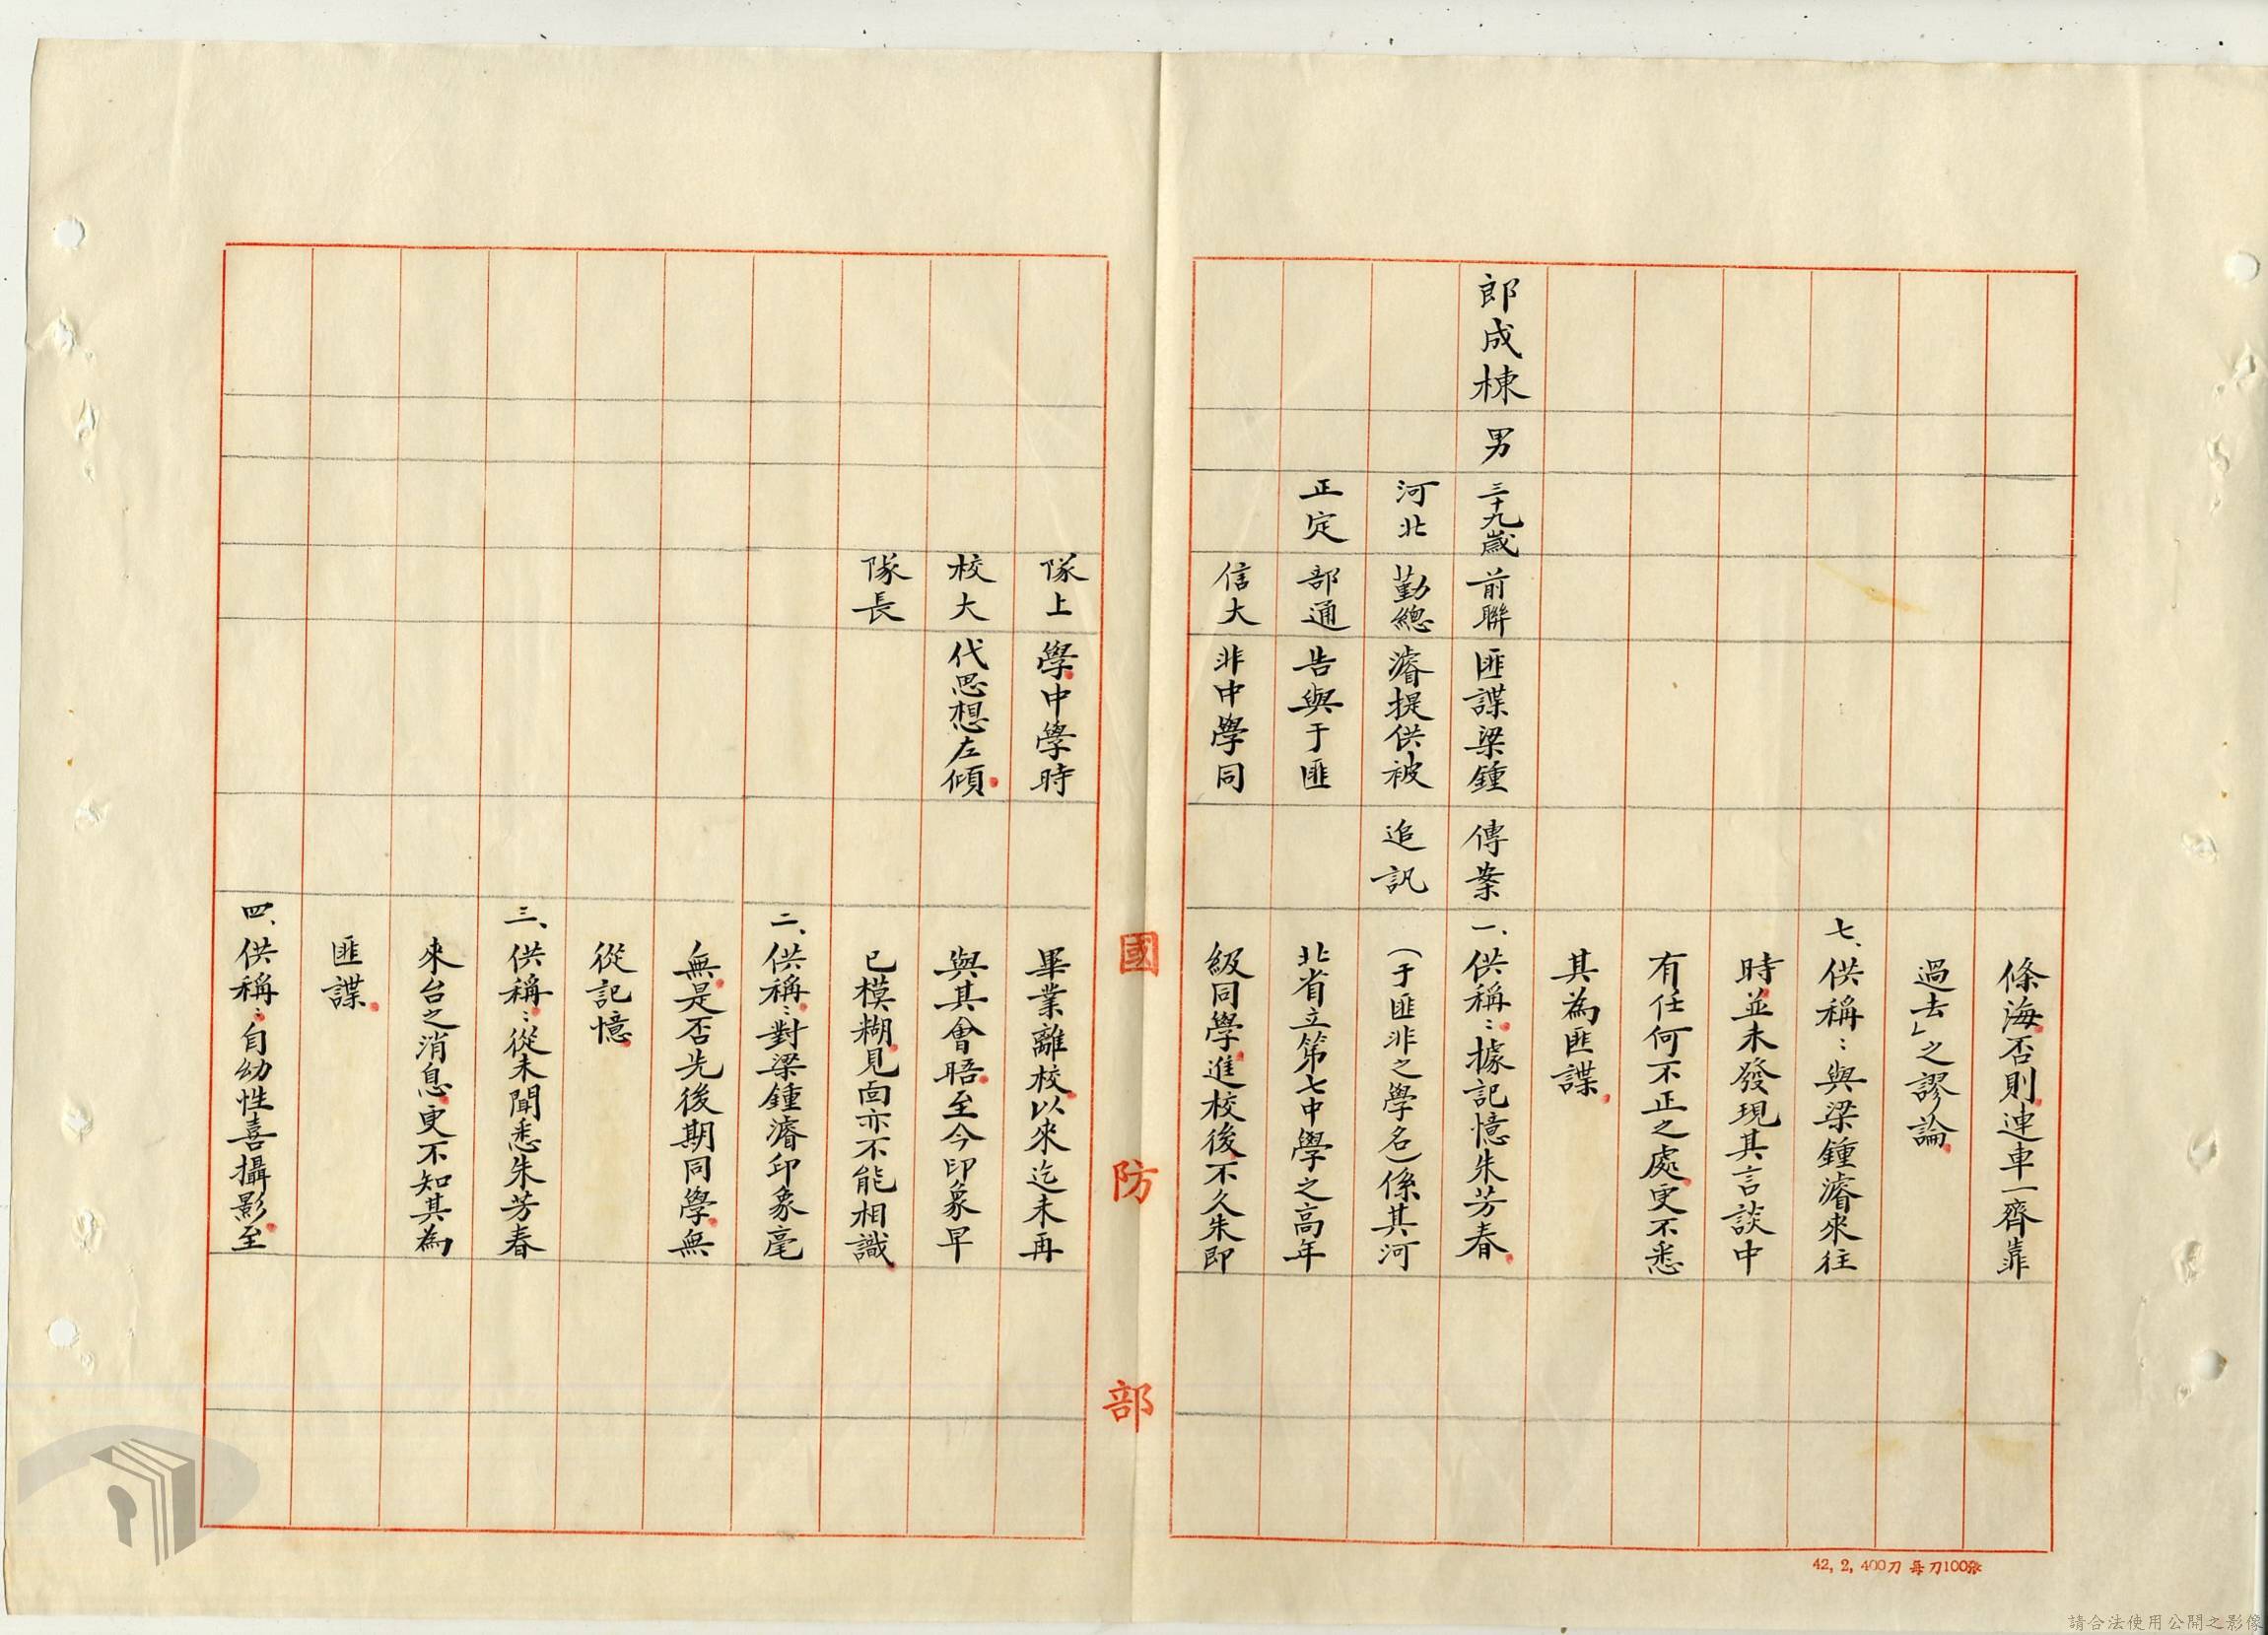 條海否則連車一齊靠
過去」之謬論
七、供稱：與梁鍾濬來往
時並未發現其言談中
有任何不正之處更不悉
其為匪諜
郎成棟
男
三十九歲
河北
正定
前聯
勤總
部通
信大
隊上
校大
隊長
匪諜梁鍾
濬提供被
告與于匪
非中學同
學中學時
代思想左傾
傳案
追訊
一、供稱：據記憶朱芳春
（于匪非之學名）係其河
北省立第七中學之高年
級同學進校後不久朱即
畢業離校以來迄未再
與其會晤至今印象早
已模糊見面亦不能相識
二、供稱：對梁鍾濬印象毫
無是否先後期同學無
從記憶
三、供稱：從未聞悉朱芳春
來台之消息更不知其為
匪諜
四、供稱：自幼性喜攝影至
國防部
42, 2, 400刀 每刀100張
請合法使用公開之影像